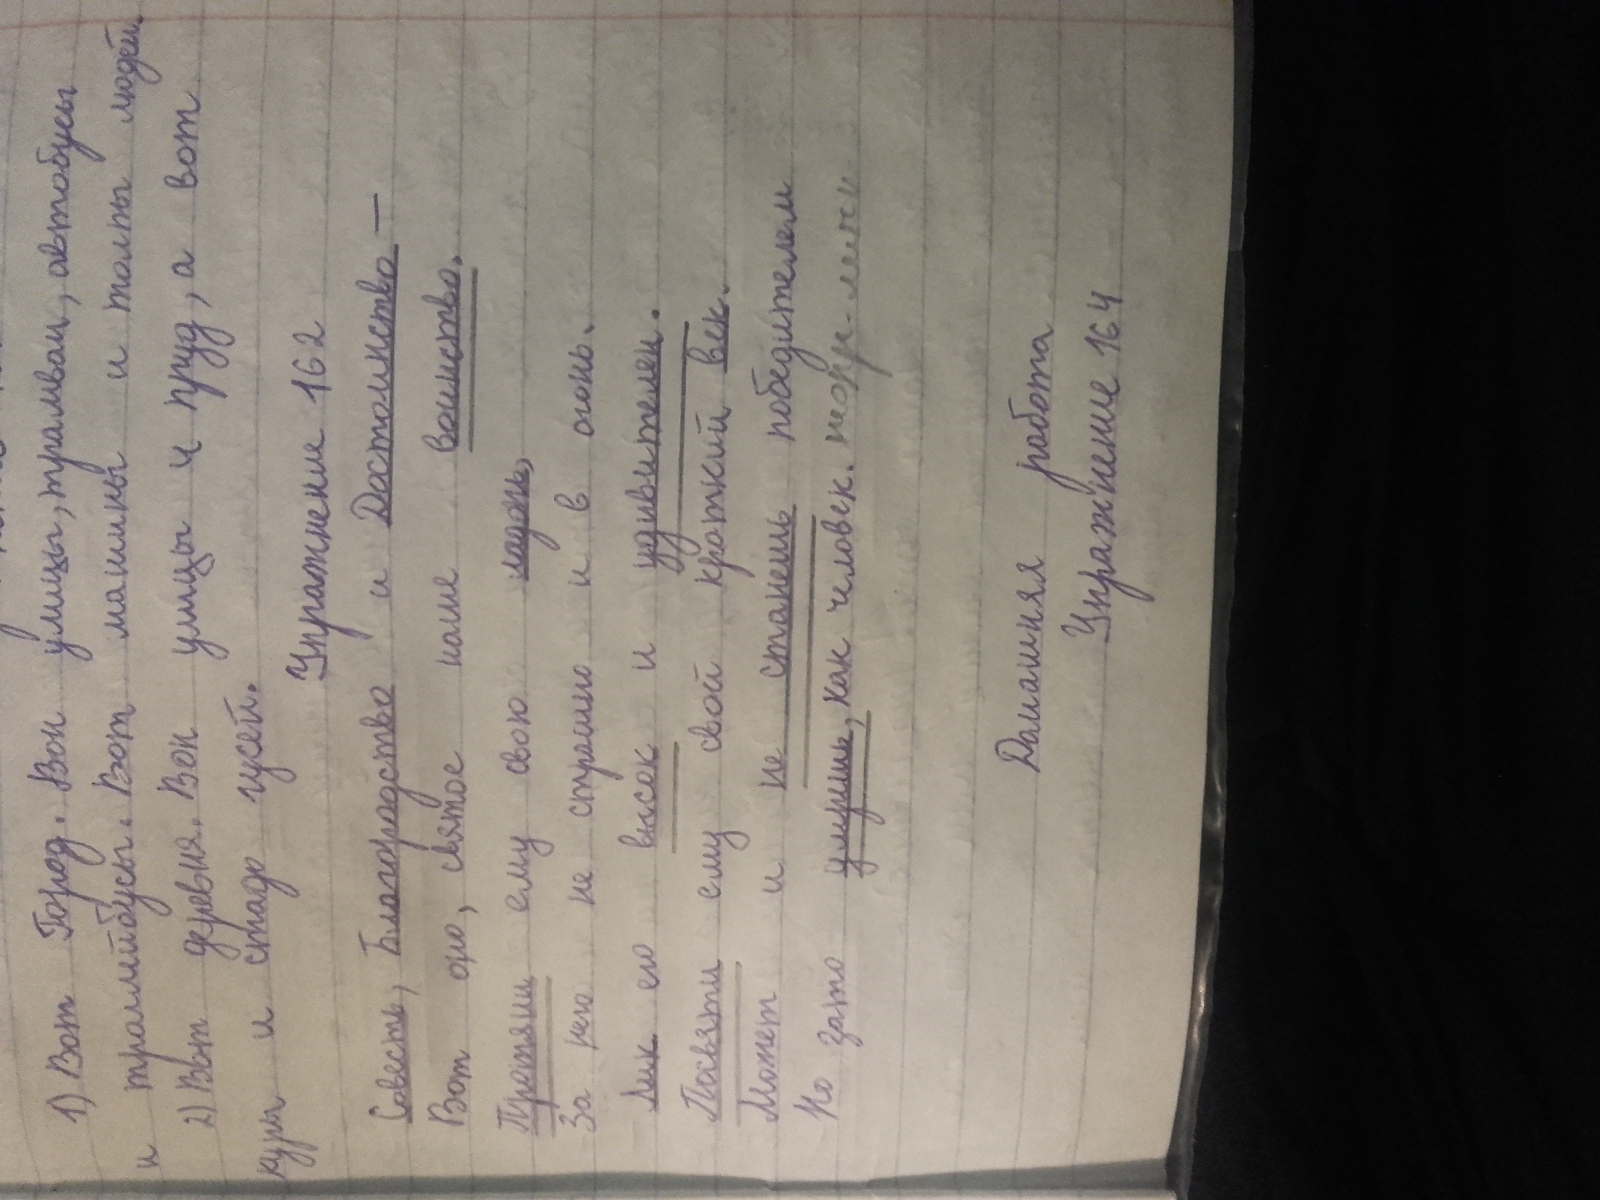 1) Вот Город. Вон улицы, трамваи, автобусы
и траллйбусы. Вот машины и толпы людей.
2) Вот деревня. Вон улицы и пруд, а вот
куры и стадо гусей.
Упражнение 162
Совесть, Благородство и Достоинство —
Вот оно, святое наше воинство.
Протяни ему свою ладонь,
За него не страшно и в огонь.
Лик его высок и удивителен.
Посвяти ему свой краткий век.
Может и не станешь победителем
Но зато умрешь, как человек.
Домашняя работа
Упражнение 164